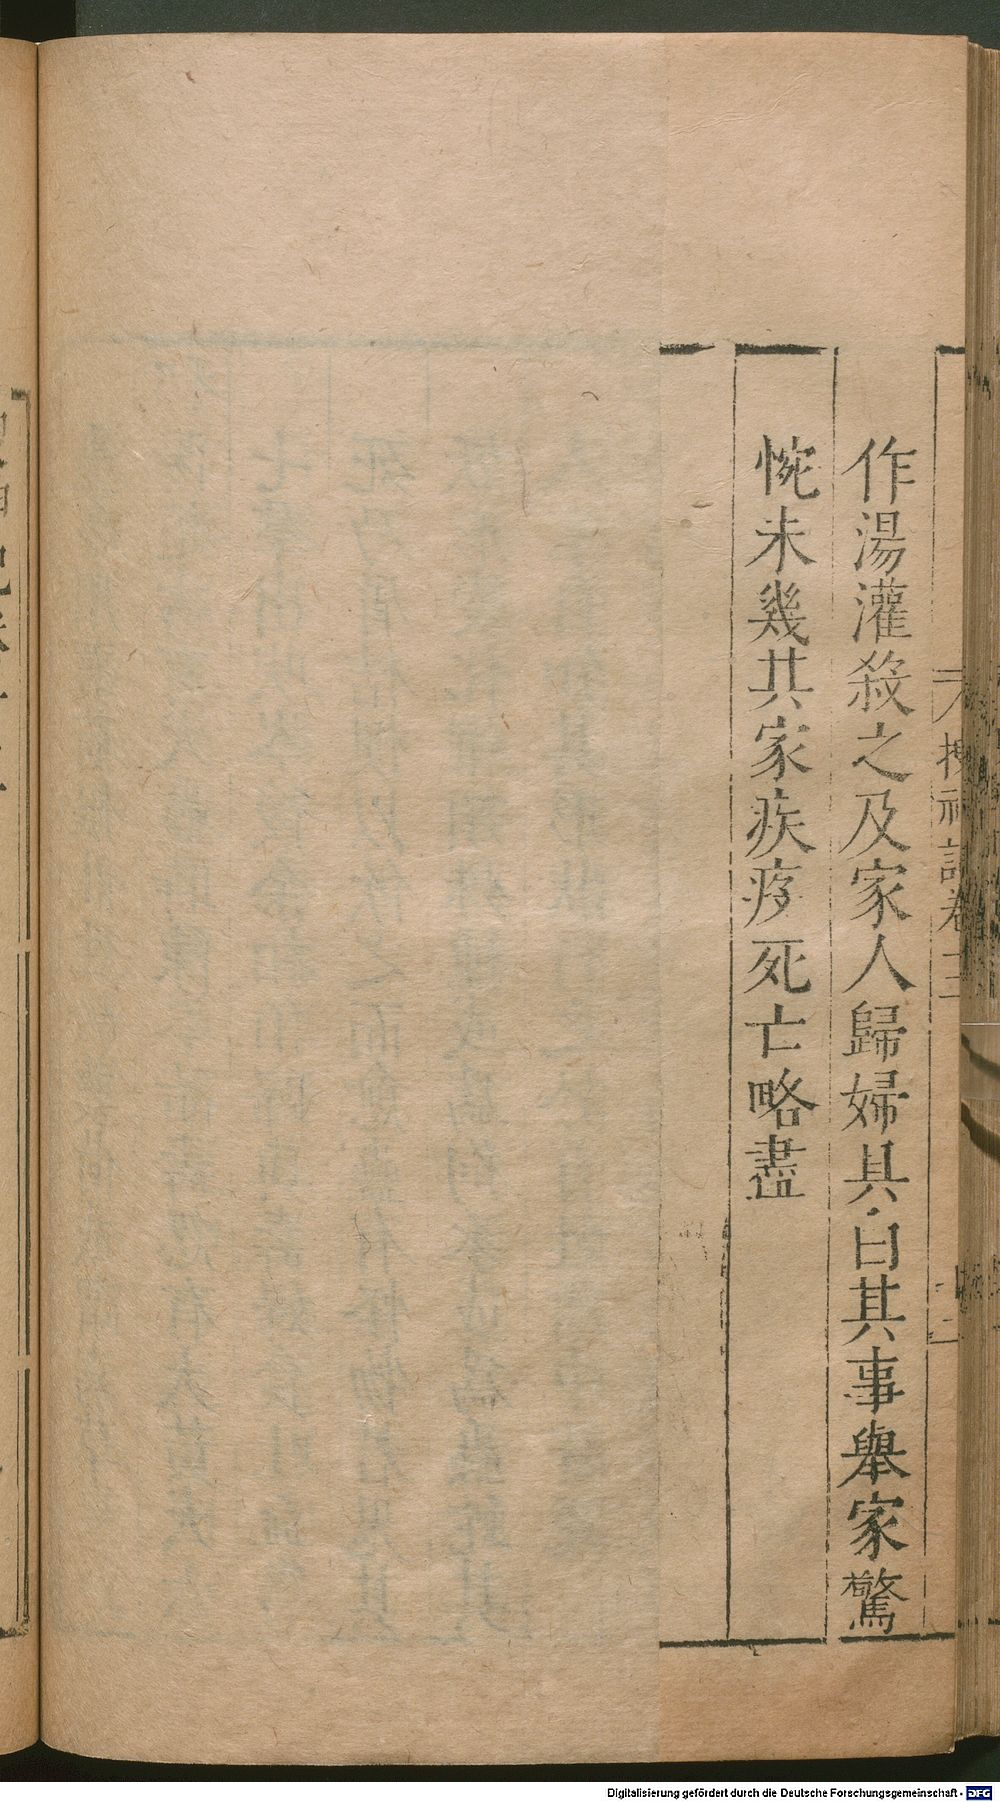 作湯灌殺之及家人歸婦具白其事舉家驚
惋未幾其家疾疫死亡略盡
搜神記卷十二
Digitalisierung gefördert durch die Deutsche Forschungsgemeinschaft - DFG